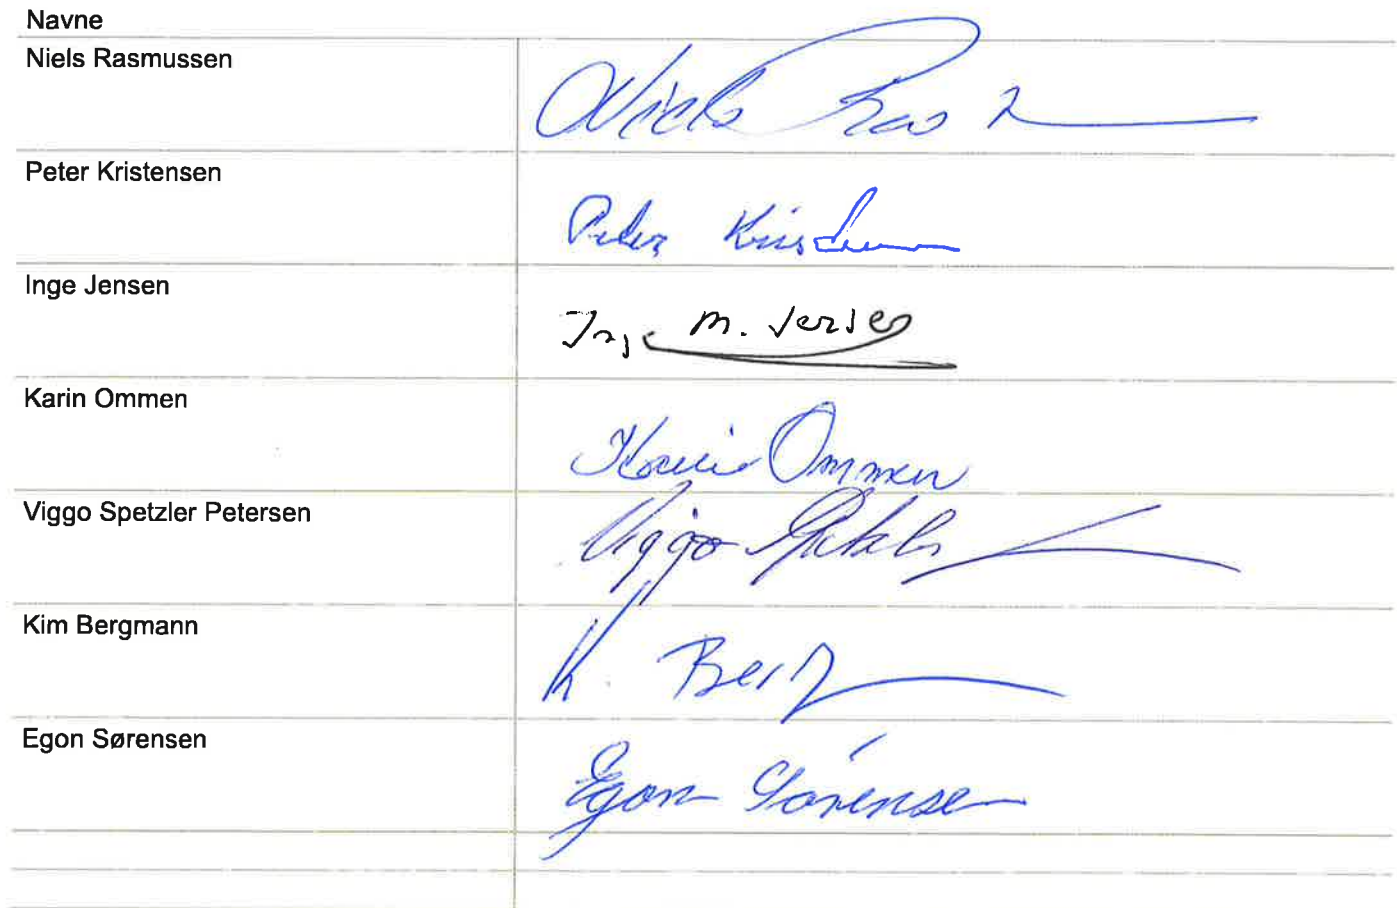 Navne
Niels Rasmussen
Niels Ras
Peter Kristensen
Peter Kristensen
Inge Jensen
Inge M. Jensen
Karin Ommen
Karin Ommen
Viggo Spetzler Petersen
Viggo Spetzler
Kim Bergmann
K. Berg
Egon Sørensen
Egon Sørensen